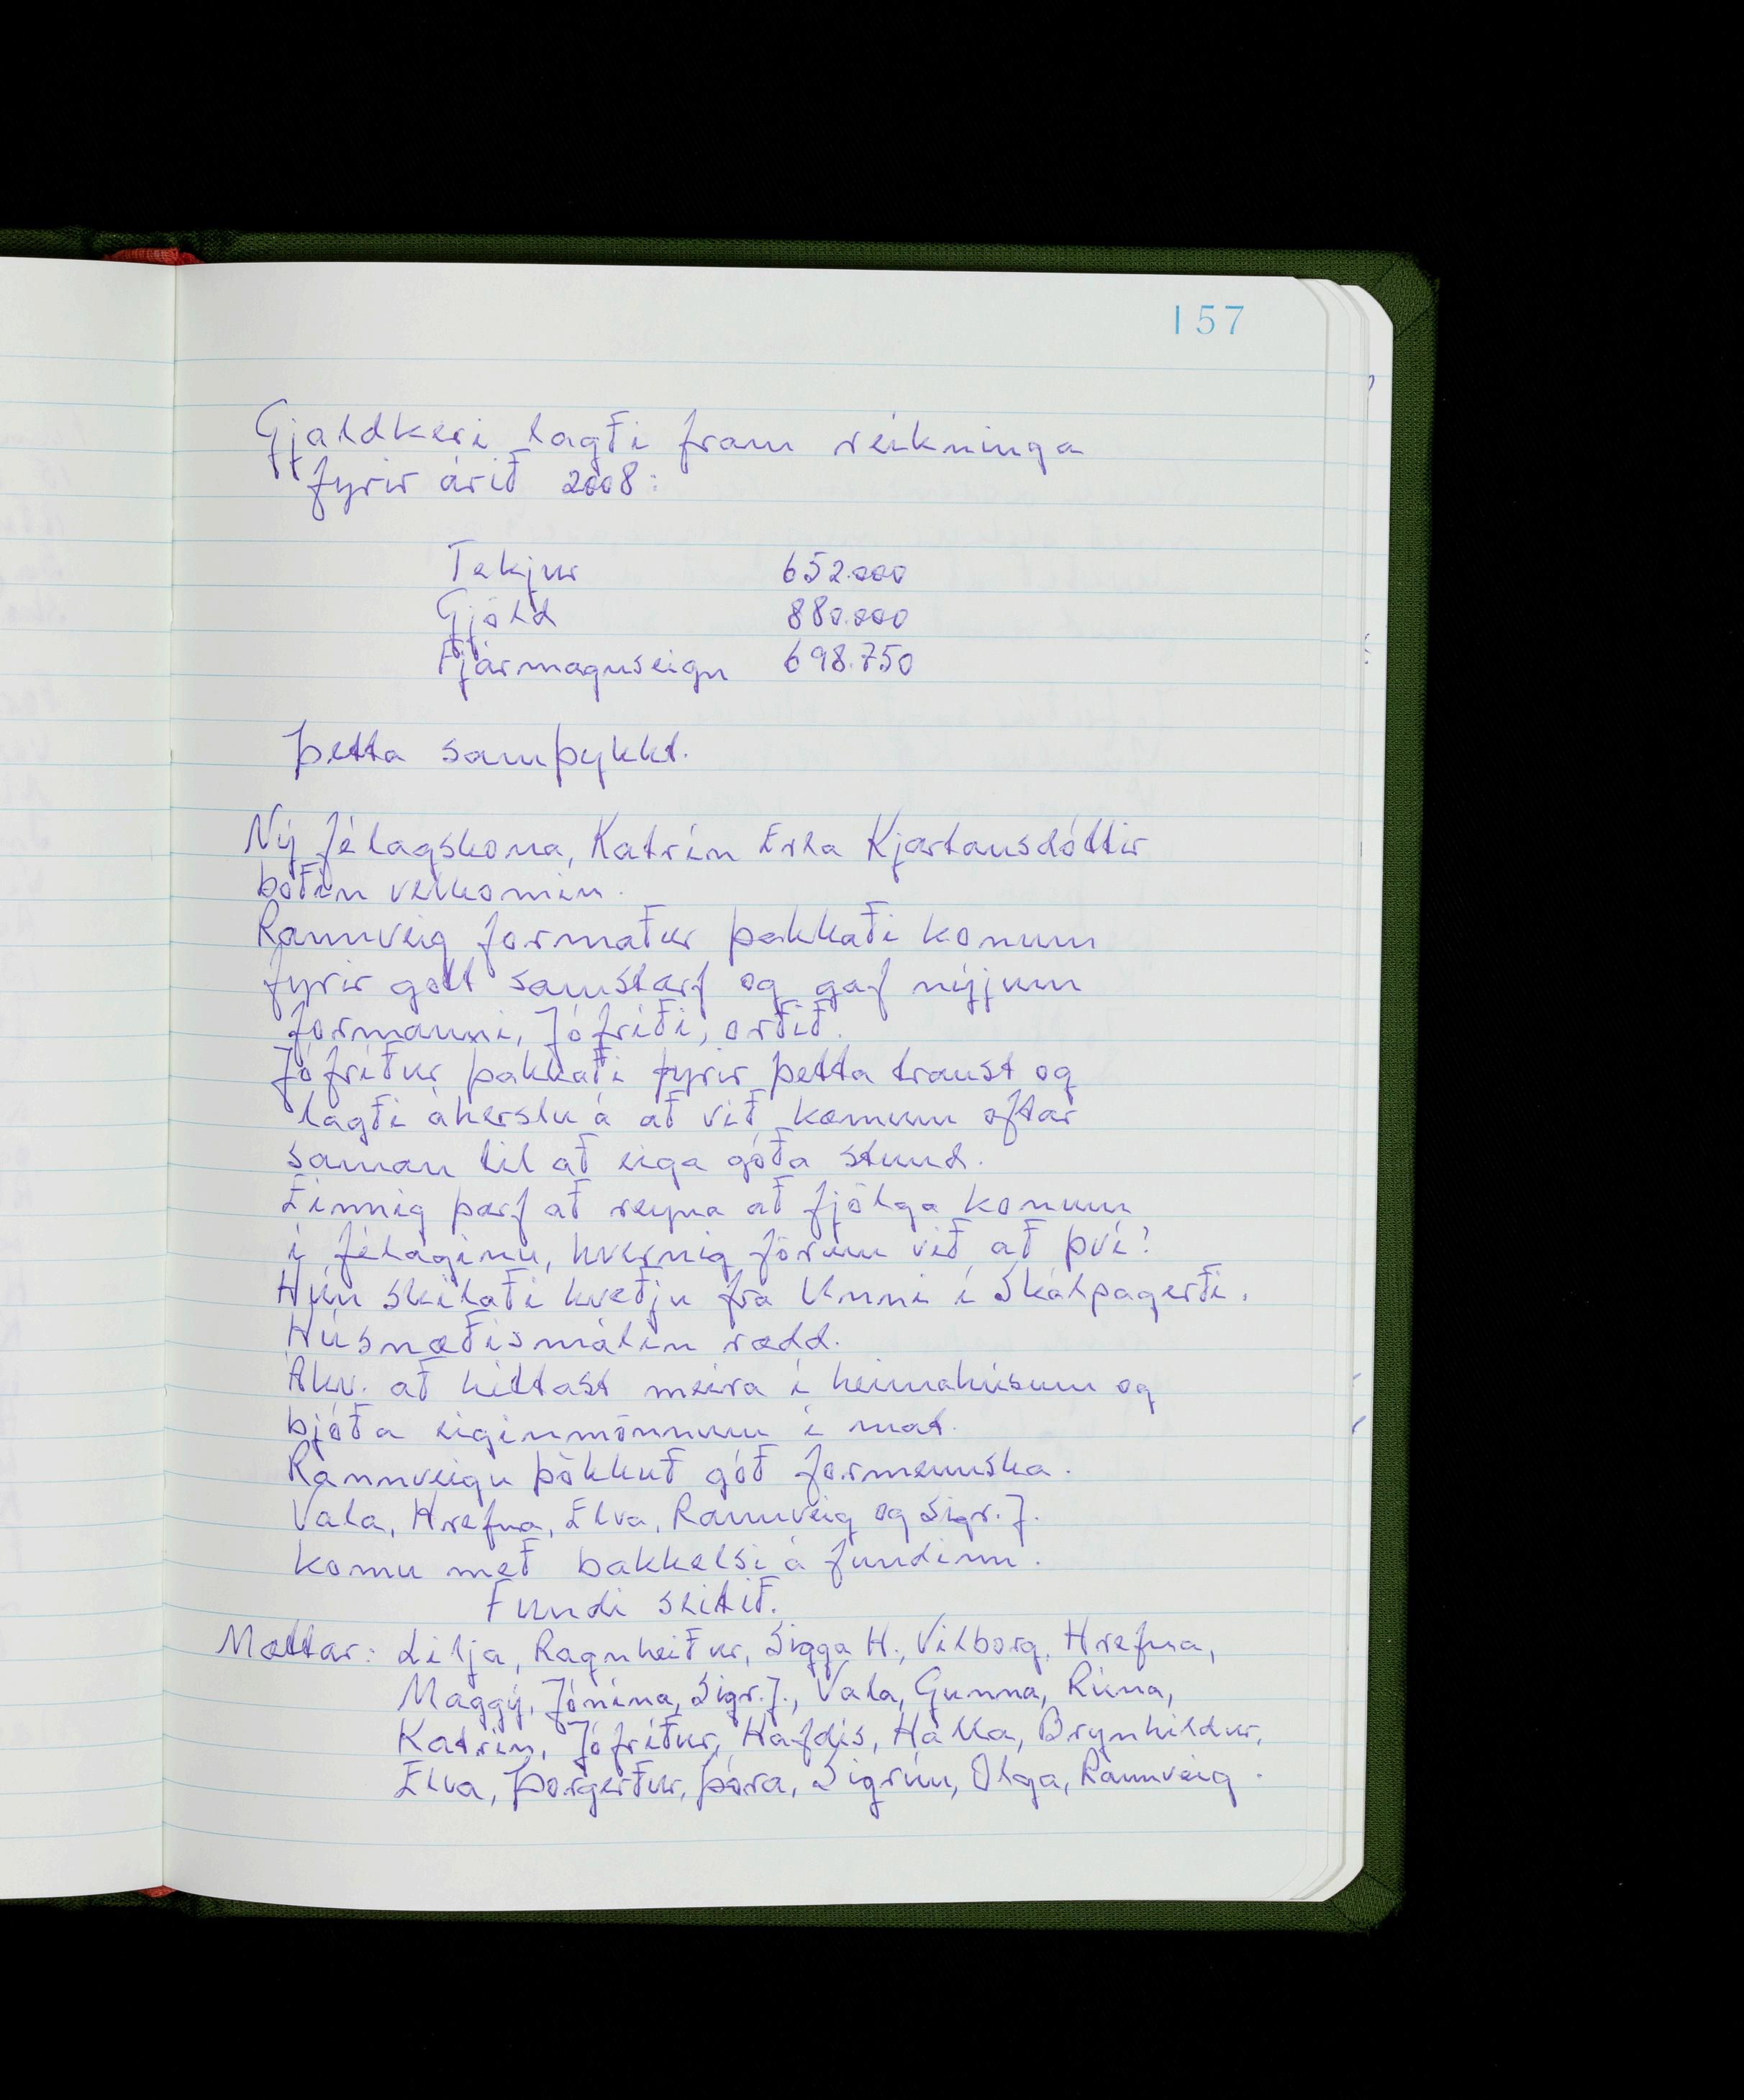 157
Gjaldkeri lagði fram reikninga
fyrir árið 2008:
Tekjur 652.000
Gjöld 880.000
Fjármagnseign 698.750
Þetta samþykkt.
Ný félagskona, Katrín Erla Kjartansdóttir
boðin velkomin.
Rannveig formaður þakkaði konum
fyrir gott samstarf og gaf nýjum
formanni, Jófríði, orðið.
Jófríður þakkaði fyrir þetta traust og
lagði áherslu á að við kæmum oftar
saman til að eiga góða stund.
Einnig þarf að reyna að fjölga konum
í félaginu, hvernig förum við að því?
Hún skilaði kveðju frá Unni í Skálpagerði.
Húsnæðismálin rædd.
Ákv. að hittast meira í heimahúsum og
bjóða eiginmönnum í mat.
Rannveigu þökkuð góð formennska.
Vala, Hrefna, Elva, Rannveig og Sigr. J.
komu með bakkelsi á fundinn.
Fundi slitið.
Mættar: Lilja, Ragnheiður, Sigga H., Vilborg, Hrefna,
Maggý, Jónína, Sigr. J., Vala, Gunna, Rúna,
Katrín, Jófríður, Hafdís, Halla, Brynhildur,
Elva, Þorgerður, Þóra, Sigrún, Olga, Rannveig.